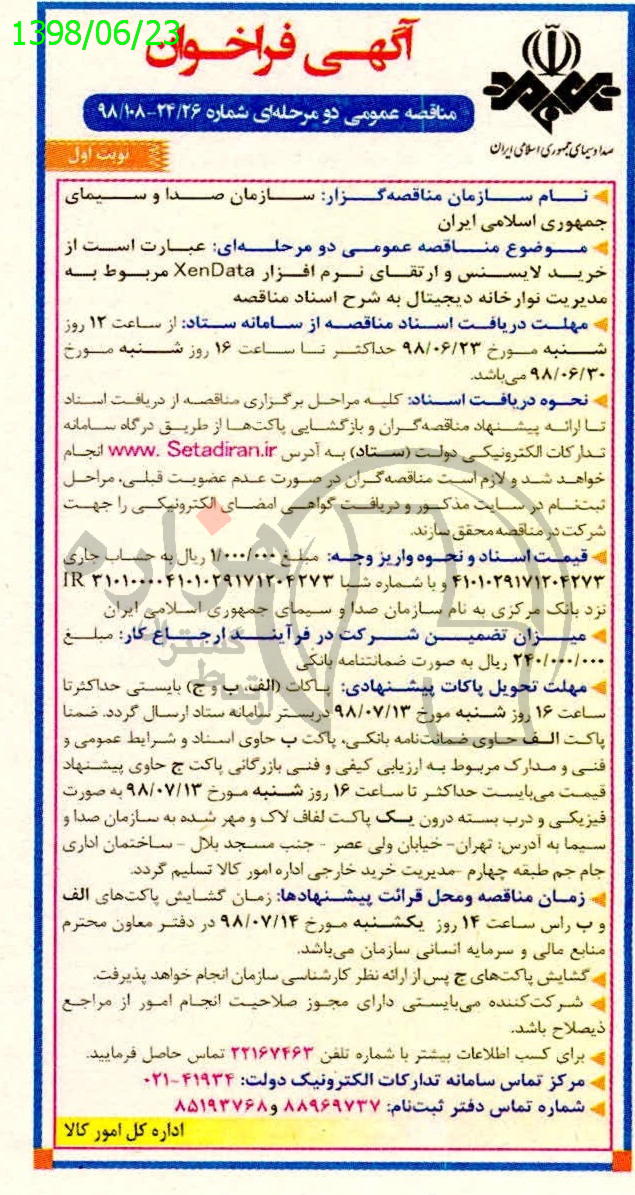 1398/06/23
آگهی فراخوان
مناقصه عمومی دو مرحله‌ای شماره ۲۴/۲۶-۹۸/۱۰۸
صدا و سیمای جمهوری اسلامی ایران
نوبت اول
نام سازمان مناقصه‌گزار: سازمان صدا و سیمای
جمهوری اسلامی ایران
موضوع مناقصه عمومی دو مرحله‌ای: عبارت است از
خرید لایسنس و ارتقای نرم افزار XenData مربوط به
مدیریت نوارخانه دیجیتال به شرح اسناد مناقصه
مهلت دریافت اسناد مناقصه از سامانه ستاد: از ساعت ۱۲ روز
شنبه مورخ ۹۸/۰۶/۲۳ حداکثر تا ساعت ۱۶ روز شنبه مورخ
۹۸/۰۶/۳۰ می‌باشد.
نحوه دریافت اسناد: کلیه مراحل برگزاری مناقصه از دریافت اسناد
تا ارائه پیشنهاد مناقصه‌گران و بازگشایی پاکت‌ها از طریق درگاه سامانه
تدارکات الکترونیکی دولت (ستاد) به آدرس www. Setadiran.ir انجام
خواهد شد و لازم است مناقصه‌گران در صورت عدم عضویت قبلی، مراحل
ثبت‌نام در سایت مذکور و دریافت گواهی امضای الکترونیکی را جهت
شرکت در مناقصه محقق سازند.
قیمت اسناد و نحوه واریز وجه: مبلغ ۱/۰۰۰/۰۰۰ ریال به حساب جاری
۴۱۰۱۰۲۹۱۷۱۲۰۴۲۷۳ و یا شماره شبا IR ۳۱۰۱۰۰۰۰۴۱۰۱۰۲۹۱۷۱۲۰۴۲۷۳
نزد بانک مرکزی به نام سازمان صدا و سیمای جمهوری اسلامی ایران
میزان تضمین شرکت در فرآیند ارجاع کار: مبلغ
۲۴۰/۰۰۰/۰۰۰ ریال به صورت ضمانتنامه بانکی
مهلت تحویل پاکات پیشنهادی: پاکات (الف، ب و ج) بایستی حداکثر تا
ساعت ۱۶ روز شنبه مورخ ۹۸/۰۷/۱۳ در بستر سامانه ستاد ارسال گردد. ضمنا
پاکت الف حاوی ضمانت‌نامه بانکی، پاکت ب حاوی اسناد و شرایط عمومی و
فنی و مدارک مربوط به ارزیابی کیفی و فنی بازرگانی پاکت ج حاوی پیشنهاد
قیمت می‌بایست حداکثر تا ساعت ۱۶ روز شنبه مورخ ۹۸/۰۷/۱۳ به صورت
فیزیکی و درب بسته درون یک پاکت لفاف لاک و مهر شده به سازمان صدا و
سیما به آدرس: تهران- خیابان ولی عصر - جنب مسجد بلال - ساختمان اداری
جام جم طبقه چهارم -مدیریت خرید خارجی اداره امور کالا تسلیم گردد.
زمان مناقصه ومحل قرائت پیشنهادها: زمان گشایش پاکت‌های الف
و ب راس ساعت ۱۴ روز یکشنبه مورخ ۹۸/۰۷/۱۴ در دفتر معاون محترم
منابع مالی و سرمایه انسانی سازمان می‌باشد.
گشایش پاکت‌های ج پس از ارائه نظر کارشناسی سازمان انجام خواهد پذیرفت.
شرکت‌کننده می‌بایستی دارای مجوز صلاحیت انجام امور از مراجع
ذیصلاح باشد.
برای کسب اطلاعات بیشتر با شماره تلفن ۲۲۱۶۷۴۶۳ تماس حاصل فرمایید.
مرکز تماس سامانه تدارکات الکترونیک دولت: ۴۱۹۳۴-۰۲۱
شماره تماس دفتر ثبت‌نام: ۸۸۹۶۹۷۳۷ و۸۵۱۹۳۷۶۸
اداره کل امور کالا